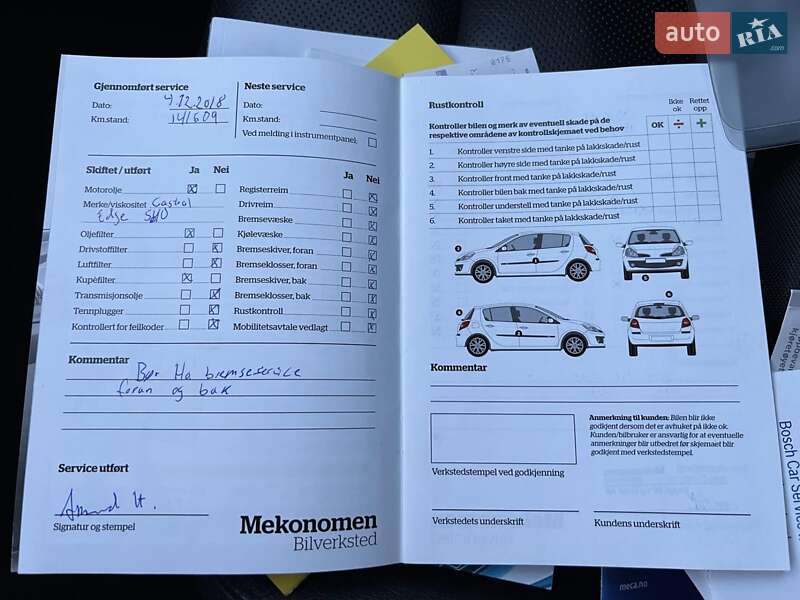 auto RIA .com
Gjennomført service
Dato: 4.12.2018
Km.stand: 141609
Neste service
Dato:
Km.stand:
Ved melding i instrumentpanel:
Skiftet / utført Ja Nei
Motorolje
Merke/viskositet Castrol
Edge
Oljefilter
Drivstoffilter
Luftfilter
Kupèfilter
Transmisjonsolje
Tennplugger
Kontrollert for feilkoder
Ja Nei
Registerreim
Drivreim
Bremsevæske
Kjølevæske
Bremseskiver, foran
Bremseklosser, foran
Bremseskiver, bak
Bremseklosser, bak
Rustkontroll
Mobilitetsavtale vedlagt
Kommentar
Bør Ha bremseservice
foran og bak
Service utført
Signatur og stempel
Mekonomen
Bilverksted
Rustkontroll
Kontroller bilen og merk av eventuell skade på de
respektive områdene av kontrollskjemaet ved behov
OK
Ikke
ok
Rettet
opp
1. Kontroller venstre side med tanke på lakkskade/rust
2. Kontroller høyre side med tanke på lakkskade/rust
3. Kontroller front med tanke på lakkskade/rust
4. Kontroller bilen bak med tanke på lakkskade/rust
5. Kontroller understell med tanke på lakkskade/rust
6. Kontroller taket med tanke på lakkskade/rust
Kommentar
Verkstedstempel ved godkjenning
Anmerkning til kunden: Bilen blir ikke
godkjent dersom det er avhuket på ikke ok.
Kunden/bilbruker er ansvarlig for at eventuelle
anmerkninger blir utbedret før skjemaet blir
godkjent med verkstedstempel.
Verkstedets underskrift
Kundens underskrift
meca.no
Bosch Car Service